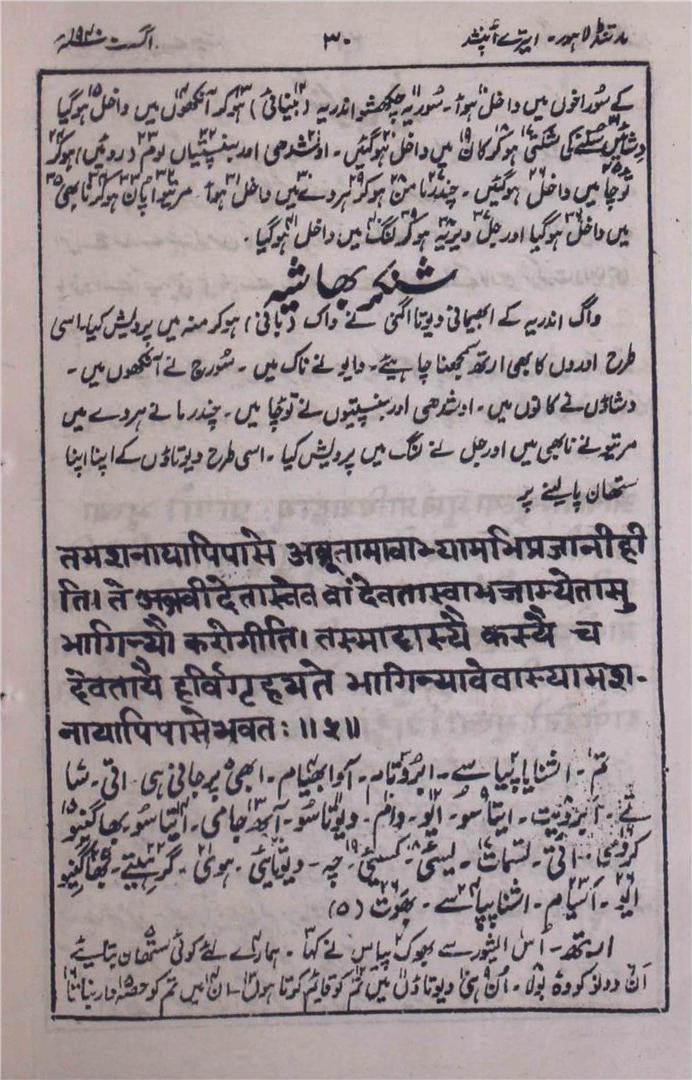 مارتنڈ لاہور۔ ایترے اُپنشد ۳۰ اگست ۱۹۲۰ء
کے سوراخوں میں داخل ہوا۔ سوریہ چکھشو اندریہ (بینائی) ہوکر آنکھوں میں داخل ہوگیا
دشائیں سننے کی شکتی ہوکر کان میں داخل ہوگئیں۔ اوشدھی اور بنسپتیاں لوم (روئیں) ہوکر
توچا میں داخل ہوگئیں۔ چندرما من ہوکر ہردے میں داخل ہوا۔ مرتیو اپان ہوکر نابھی
میں داخل ہوگیا اور جل ویریہ ہوکر لنگ میں داخل ہوگیا۔
شنکر بھاشیہ
واگ اندریہ کے ابھیمانی دیوتا اگنی نے واک (بانی) ہوکر منہ میں پرویش کیا۔ اسی
طرح اوروں کا بھی ارتھ سمجھنا چاہیئے۔ وایو نے ناک میں۔ سورج نے آنکھوں میں۔
دشاؤں نے کانوں میں۔ اوشدھی اور بنسپتیوں نے توچا میں۔ چندرما نے ہردے میں
مرتیو نے نابھی میں اور جل نے لنگ میں پرویش کیا۔ اسی طرح دیوتاؤں کے اپنا اپنا
ستھان پا لینے پر
तमशनायापिपासे अब्रूतामावाभ्यामभिप्रजानीही
ति। ते अब्रवीदेतास्वेव वां देवतास्वाभजाम्येतासु
भागिन्यौ करोमीति। तस्माद्यस्यै कस्यै च
देवतायै हविर्गृह्यते भागिन्यावेवास्यामश-
नायापिपासे भवतः॥५॥
تم۔ اشنایاپیاسے۔ ابروتام۔ آوابھیام۔ ابھی پرجانی ہی۔ اتی۔
تے۔ ابرویت۔ ایتاسو۔ ایو۔ وام۔ دیوتاسو۔ آبھجامی۔ ایتاسو۔ بھاگنیو
کرومی۔ اتی۔ تسمات۔ کسیئی۔ چہ۔ دیوتایئی۔ ہوی۔ بھاگنیو
ایو۔ اسیام۔ اشنایاپیاسے۔ بھوت (۵)
ارتھ۔ اُس ایشور سے بھوک پیاس نے کہا۔ ہمارے لئے کوئی ستھان بتایئے
اُن دونو کو وہ بولا۔ اُن ہی دیوتاؤں میں تم کو قایم کرتا ہوں۔ ان میں تم کو حصہ دار بناتا